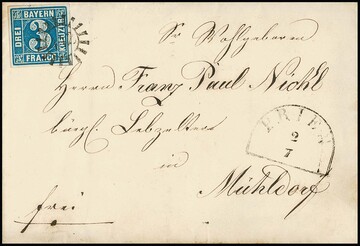 BAYERN
DREI 3 KREUZER
FRANCO
Sr Wohlgeboren
Herrn Franz Paul Nichl
bürgl. Lebzelter
in
Mühldorf
frei
PRIEN
2
7